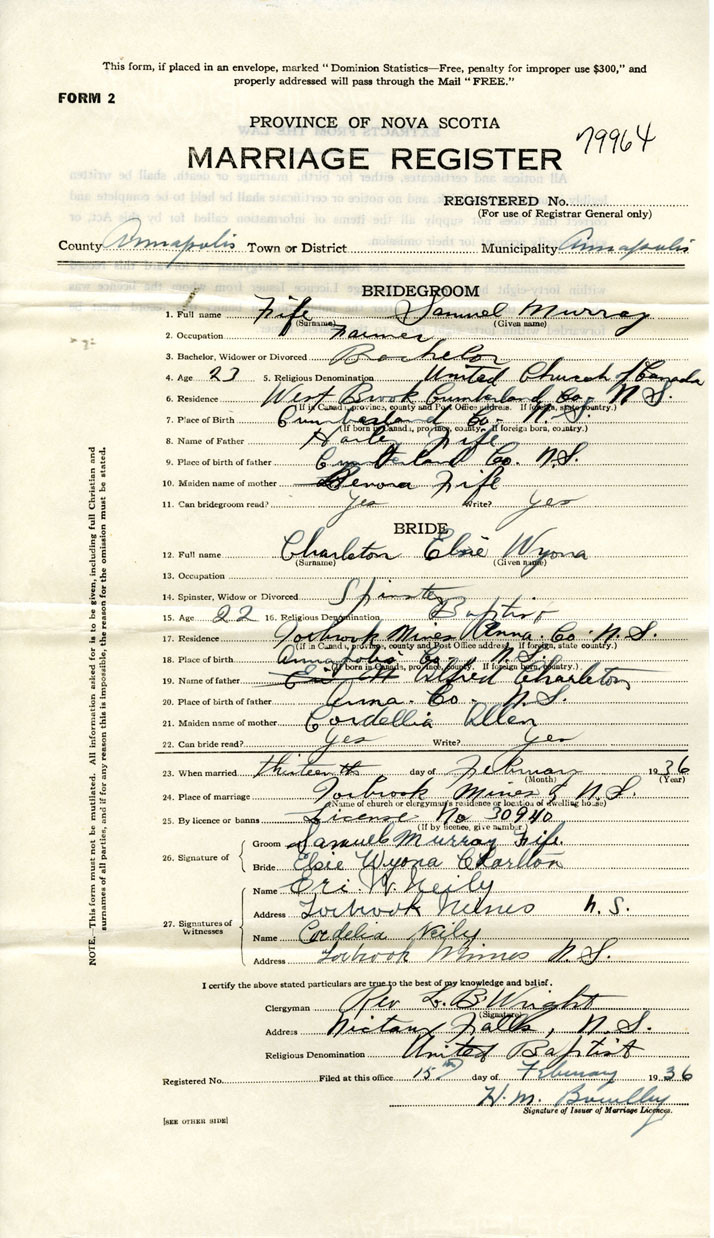 This form, if placed in an envelope, marked "Dominion Statistics—Free, penalty for improper use $300," and
properly addressed will pass through the Mail "FREE."
FORM 2
PROVINCE OF NOVA SCOTIA
79964
MARRIAGE REGISTER
REGISTERED No.
(For use of Registrar General only)
County Annapolis Town or District Municipality Annapolis
BRIDEGROOM
1. Full name Fife Samuel Murray
(Surname) (Given name)
2. Occupation Farmer
3. Bachelor, Widower or Divorced Bachelor
4. Age 23 5. Religious Denomination United Church of Canada
6. Residence West Brook Cumberland Co. N.S.
(If in Canada, province, county and Post Office address. If foreign, state country.)
7. Place of Birth Cumberland Co. N.S.
(If born in Canada, province, county. If foreign born, country.)
8. Name of Father Harley Fife
9. Place of birth of father Cumberland Co. N.S.
10. Maiden name of mother Benora Fife
11. Can bridegroom read? Yes Write? Yes
BRIDE
12. Full name Charleton Elsie Wyona
(Surname) (Given name)
13. Occupation
14. Spinster, Widow or Divorced Spinster
15. Age 22 16. Religious Denomination Baptist
17. Residence Torbrook Mines Anna. Co. N.S.
(If in Canada, province, county and Post Office address. If foreign, state country.)
18. Place of birth Annapolis Co. N.S.
(If born in Canada, province, county. If foreign born, country.)
19. Name of father Alfred Charleton
20. Place of birth of father Anna. Co. N.S.
21. Maiden name of mother Cordellia Allen
22. Can bride read? Yes Write? Yes
23. When married thirteenth day of February 1936
(Month) (Year)
24. Place of marriage Torbrook Mines N.S.
(Name of church or clergyman's residence or location of dwelling house)
25. By licence or banns License No 30940
(If by licence, give number)
26. Signature of Groom Samuel Murray Fife
Bride Elsie Wyona Charlton
27. Signatures of Witnesses Name Eri W. Neily
Address Torbrook Mines N.S.
Name Cordelia Neily
Address Torbrook Mines N.S.
I certify the above stated particulars are true to the best of my knowledge and belief.
Clergyman Rev L. B. Wright
(Signature)
Address Nictaux Falls, N.S.
Religious Denomination United Baptist
Registered No. Filed at this office 15th day of February 1936
H. M.
Signature of Issuer of Marriage Licences.
[SEE OTHER SIDE]
NOTE.—This form must not be mutilated. All information asked for is to be given, including full Christian and
surnames of all parties, and if for any reason this is impossible, the reason for the omission must be stated.